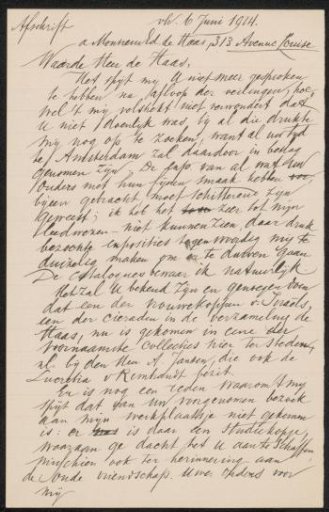 Afschrift
vh. 6 Juni 1914.
a Monsieur Ed. de Haas, 313 Avenue Louise
Waarde Heer de Haas,
Het spijt mij U niet meer gesproken
te hebben na afloop der veilingen, hoe
wel 't mij volstrekt niet verwondert dat
U niet doenlijk was, bij al die drukte
mij nog op te zoeken, want al uw tijd
te Amsterdam zal daardoor in beslag
genomen zijn. De expo. van al wat Uw
Ouders met hun fijnen smaak hebben
bijeen gebracht moet schitterend zijn
geweest; ik heb het zeer tot mijn
leedwezen niet kunnen zien, daar druk
bezochte exposities tegenwoordig mij te
duizelig maken om er te durven gaan
De catalogues bewaar ik natuurlijk
Het zal U bekend zijn en genoegen doen
dat een der vrouwekoppen v. Israels,
een der cieraden in de verzameling de
Haas, nu is gekomen in eene der
voornaamste collecties hier ter stede,
nl. bij den Heer J. Janssen, die ook de
Lucretia v Rembrandt bezit.
Er is nog een reden waarom 't mij
spijt dat van Uw voorgenomen bezoek
aan mijn werkplaatsje niet gekomen
is: er is daar een studiekopje,
waaraan ge dacht het U aan te schaffen
misschien ook ter herinnering aan
de oude vriendschap. Uwer ouders voor
mij